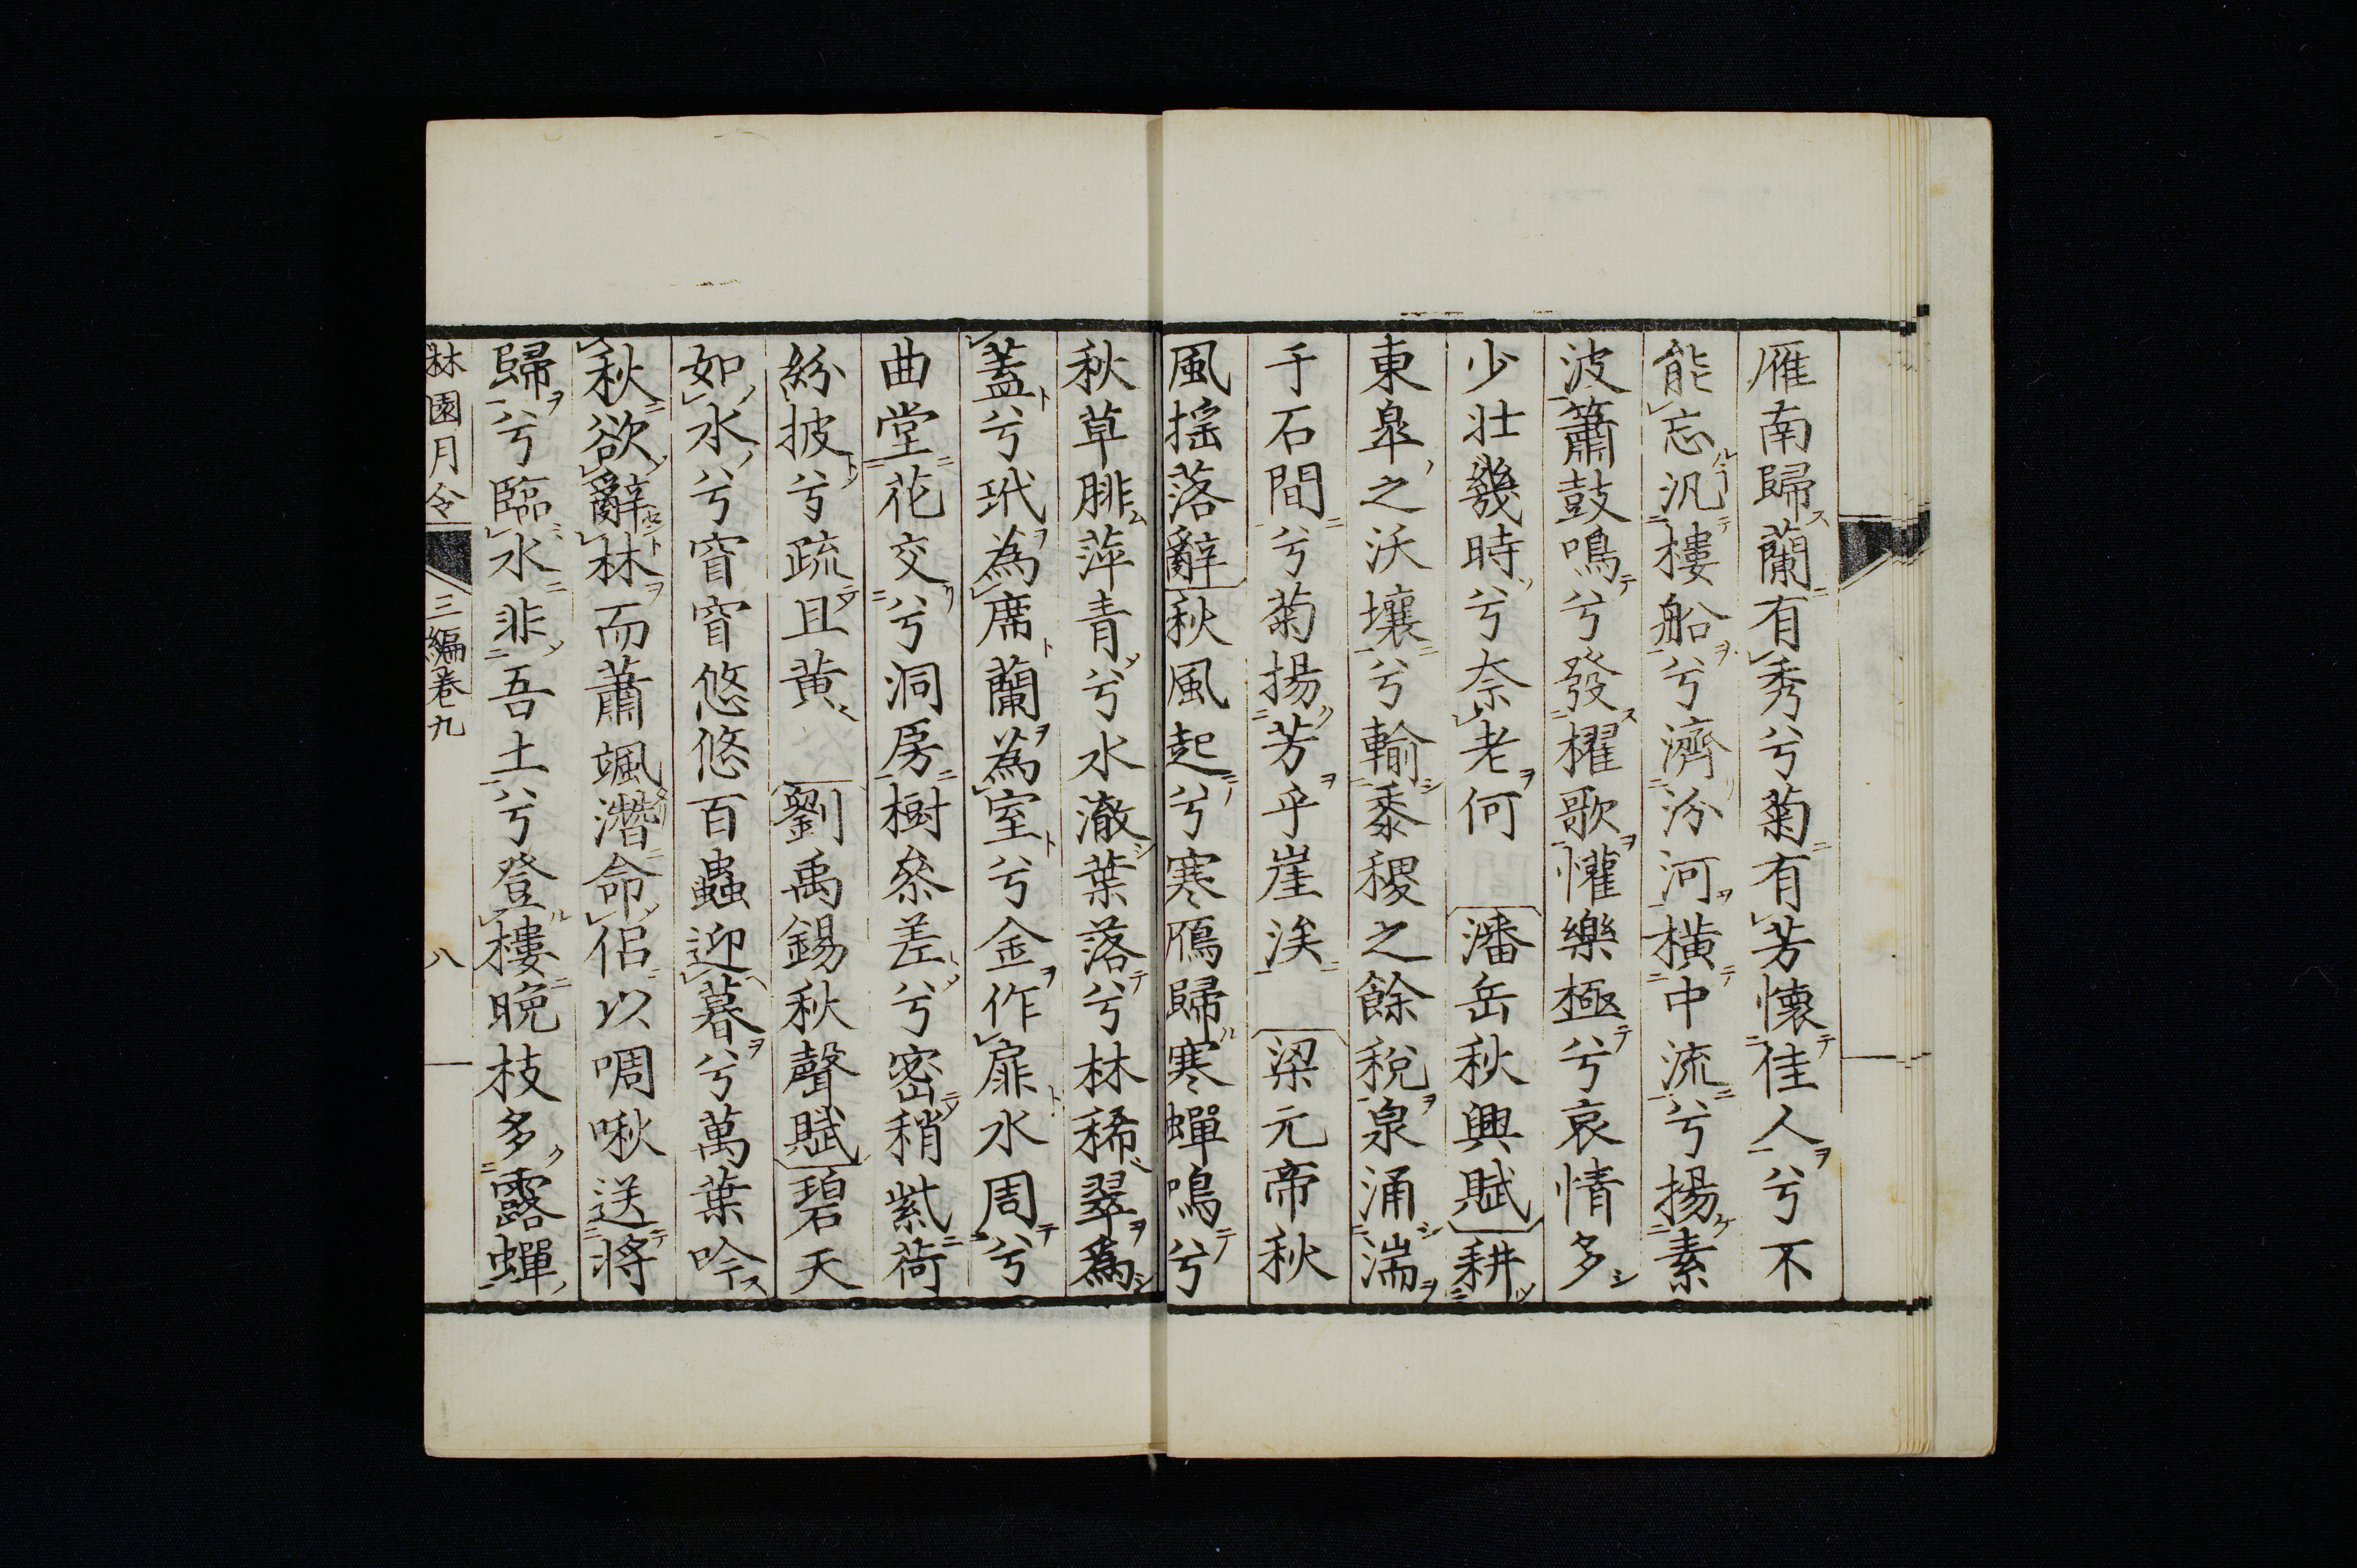 雁南歸蘭有秀兮菊有芳懷佳人兮不
能忘汎樓船兮濟汾河横中流兮揚素
波簫鼓鳴兮發櫂歌懽樂極兮哀情多
少壮幾時兮奈老何　潘岳秋興賦耕
東皐之沃壤兮輸黍稷之餘税泉涌湍
于石間兮菊揚芳乎崖涘　梁元帝秋
風揺落辭秋風起兮寒鴈歸寒蟬鳴兮
秋草腓萍青兮水澈葉落兮林稀翠為
蓋兮玳為席蘭為室兮金作扉水周兮
曲堂花交兮洞房樹叅差兮密稍紫荷
紛披兮疏且黄　劉禹錫秋聲賦碧天
如水兮窅窅悠悠百蟲迎暮兮萬葉吟
秋欲辭林而蕭颯潛命侶以啁啾送將
歸兮臨水非吾土兮登樓晩枝多露蟬
林園月令　三編巻九　八